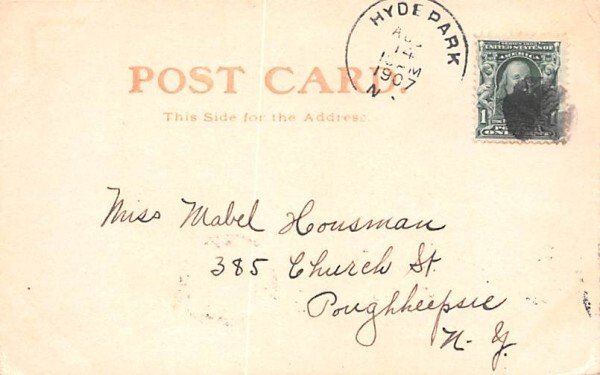 HYDE PARK
AUG
14
1907
N.
SERIES 1902
UNITED STATES OF
AMERICA
1 1
ONE
POST CARD.
This Side for the Address.
Miss Mabel Housman
385 Church St.
Poughkeepsie
N. Y.